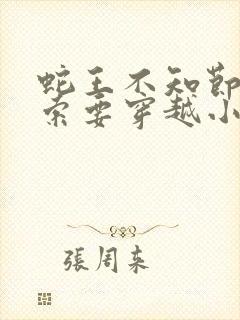 蛇王不知節
索要穿越小
張周来